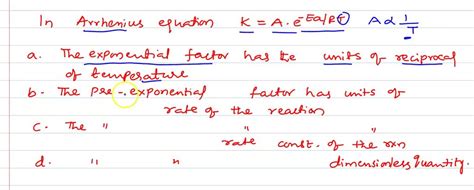 In Arrhenius equation K = A·e^-Ea/RT A α 1/T
a. The exponential factor has the units of reciprocal
of temperature
b. The pre-exponential factor has units of
rate of the reaction
c. The " "
rate const. of the rxn
d. " " dimensionless quantity.